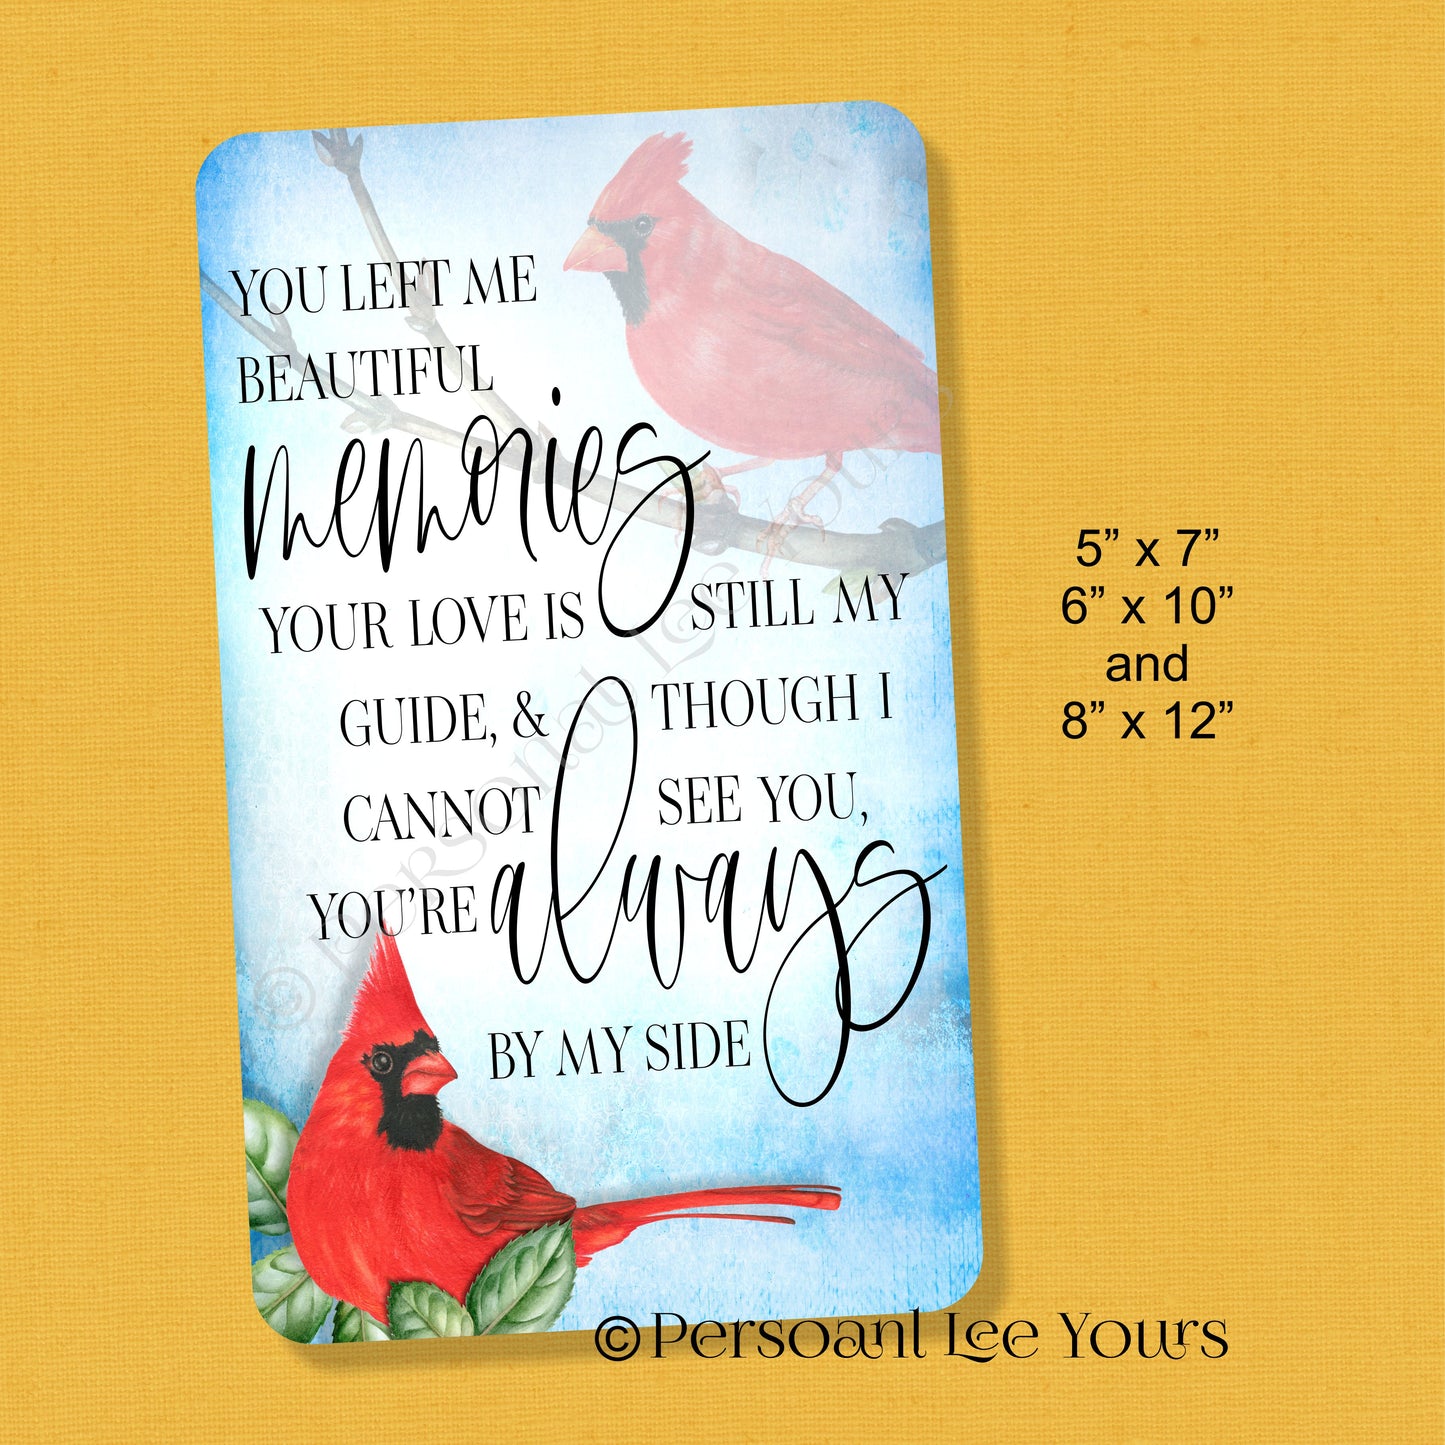 YOU LEFT ME
BEAUTIFUL
memories
YOUR LOVE IS STILL MY
GUIDE, & THOUGH I
CANNOT SEE YOU,
YOU'RE always
BY MY SIDE
5” x 7”
6” x 10”
and
8” x 12”
©Persoanl Lee Yours
© Personally Lee Yours